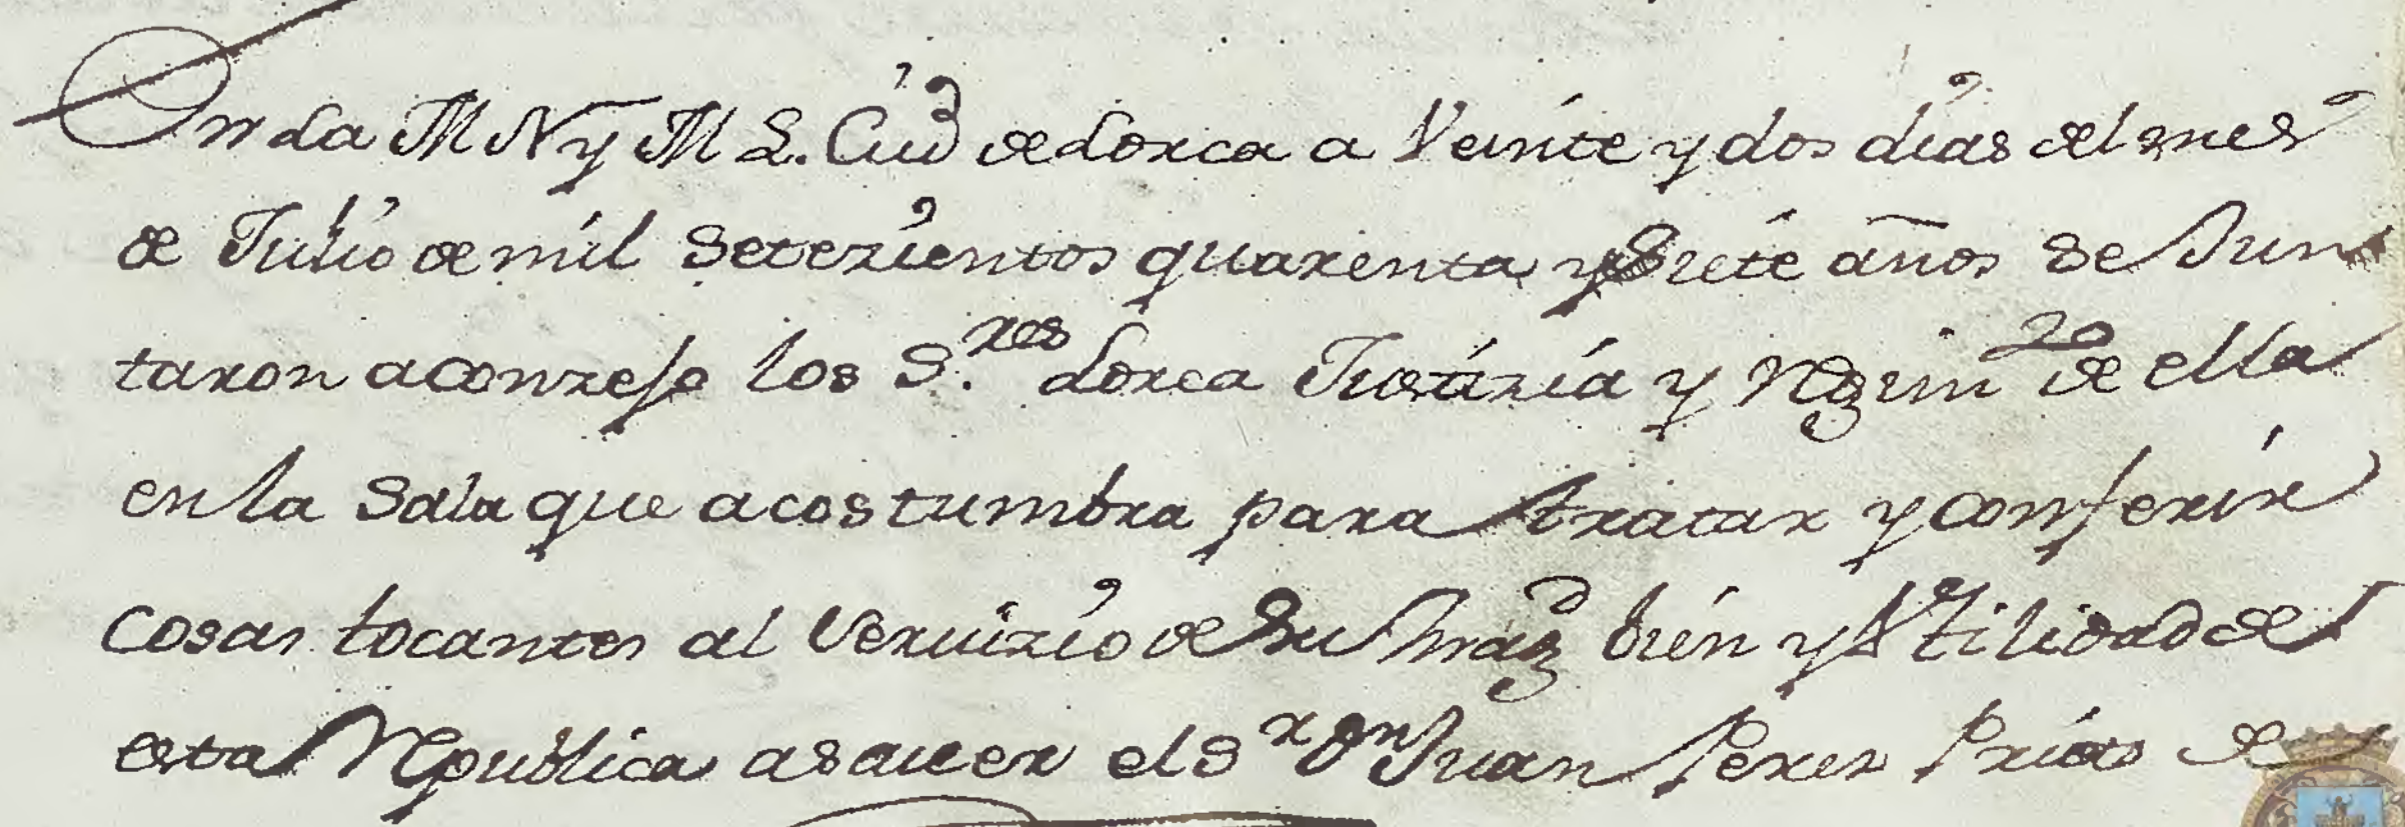 En la M N y M L. Ciud de Lorca a Veinte y dos dias del mes
de Julio de mil setezientos quarenta y siete años se Jun
taron aconzejo los S.res Lorca Justizia y Regim.to de ella
en la sala que acostumbra para tratar y conferir
Cosas tocantes al Seruizio de su Mag.d bien y Vtilidad de
esta Republica asauer el S.r D.n Juan Perez de